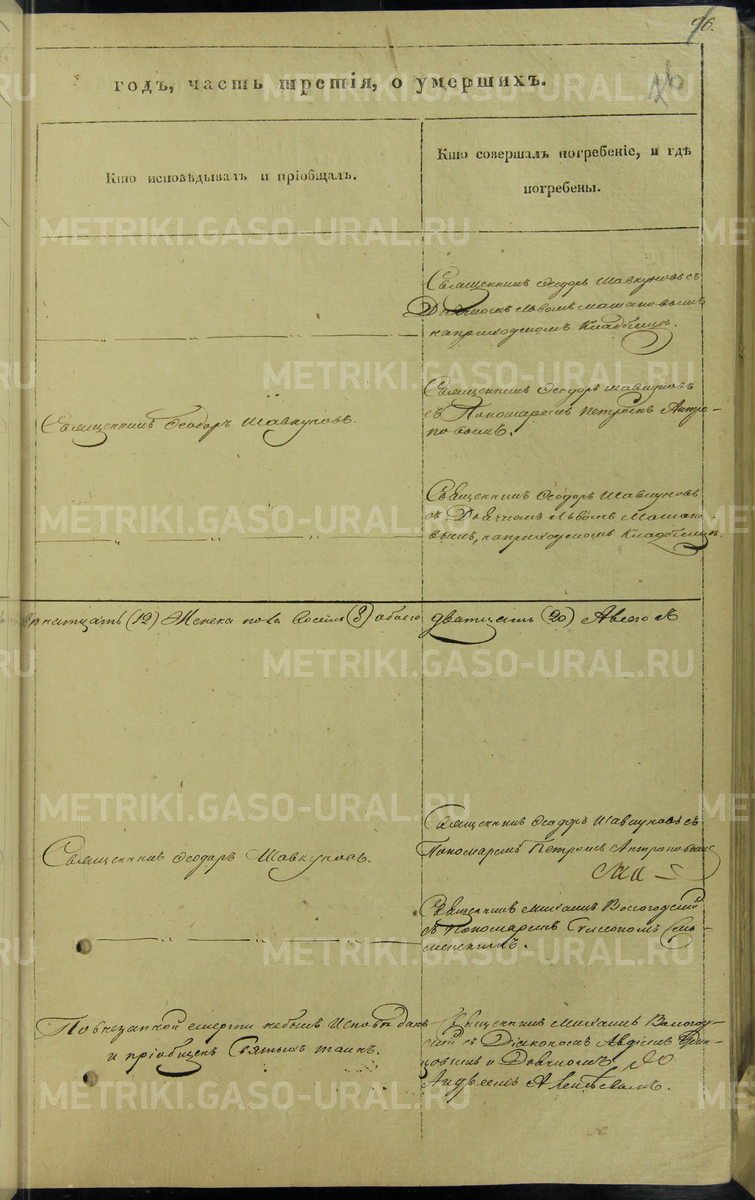 96.
26
годъ, часть третія, о умершихъ.
Кто исповѣдывалъ и пріобщалъ.
Кто совершалъ погребеніе, и гдѣ
погребены.
Священникъ Ѳеодоръ Шавкуновъ съ
на приходскомъ Кладбищѣ.
Священникъ Ѳеодоръ Шавкуновъ.
Священникъ Ѳеодоръ Шавкуновъ
съ Пономаремъ Петромъ Антро-
повымъ.
Священникъ Ѳеодоръ Шавкуновъ
съ Львомъ
на приходскомъ Кладбищѣ.
(12) Женска пола восемь (8) обоего
дватцать (20) Авгось
Священникъ Ѳеодоръ Шавкуновъ.
Священникъ Ѳеодоръ Шавкуновъ съ
Пономаремъ Петромъ Антроповымъ
Священникъ Михаилъ Вологодскій
съ Пономаремъ
По внезапной смерти не былъ Исповѣданъ
и пріобщенъ Святыхъ таинъ.
Священникъ Михаилъ Вологод-
скій съ Діакономъ
Андреемъ
METRIKI.GASO-URAL.RU